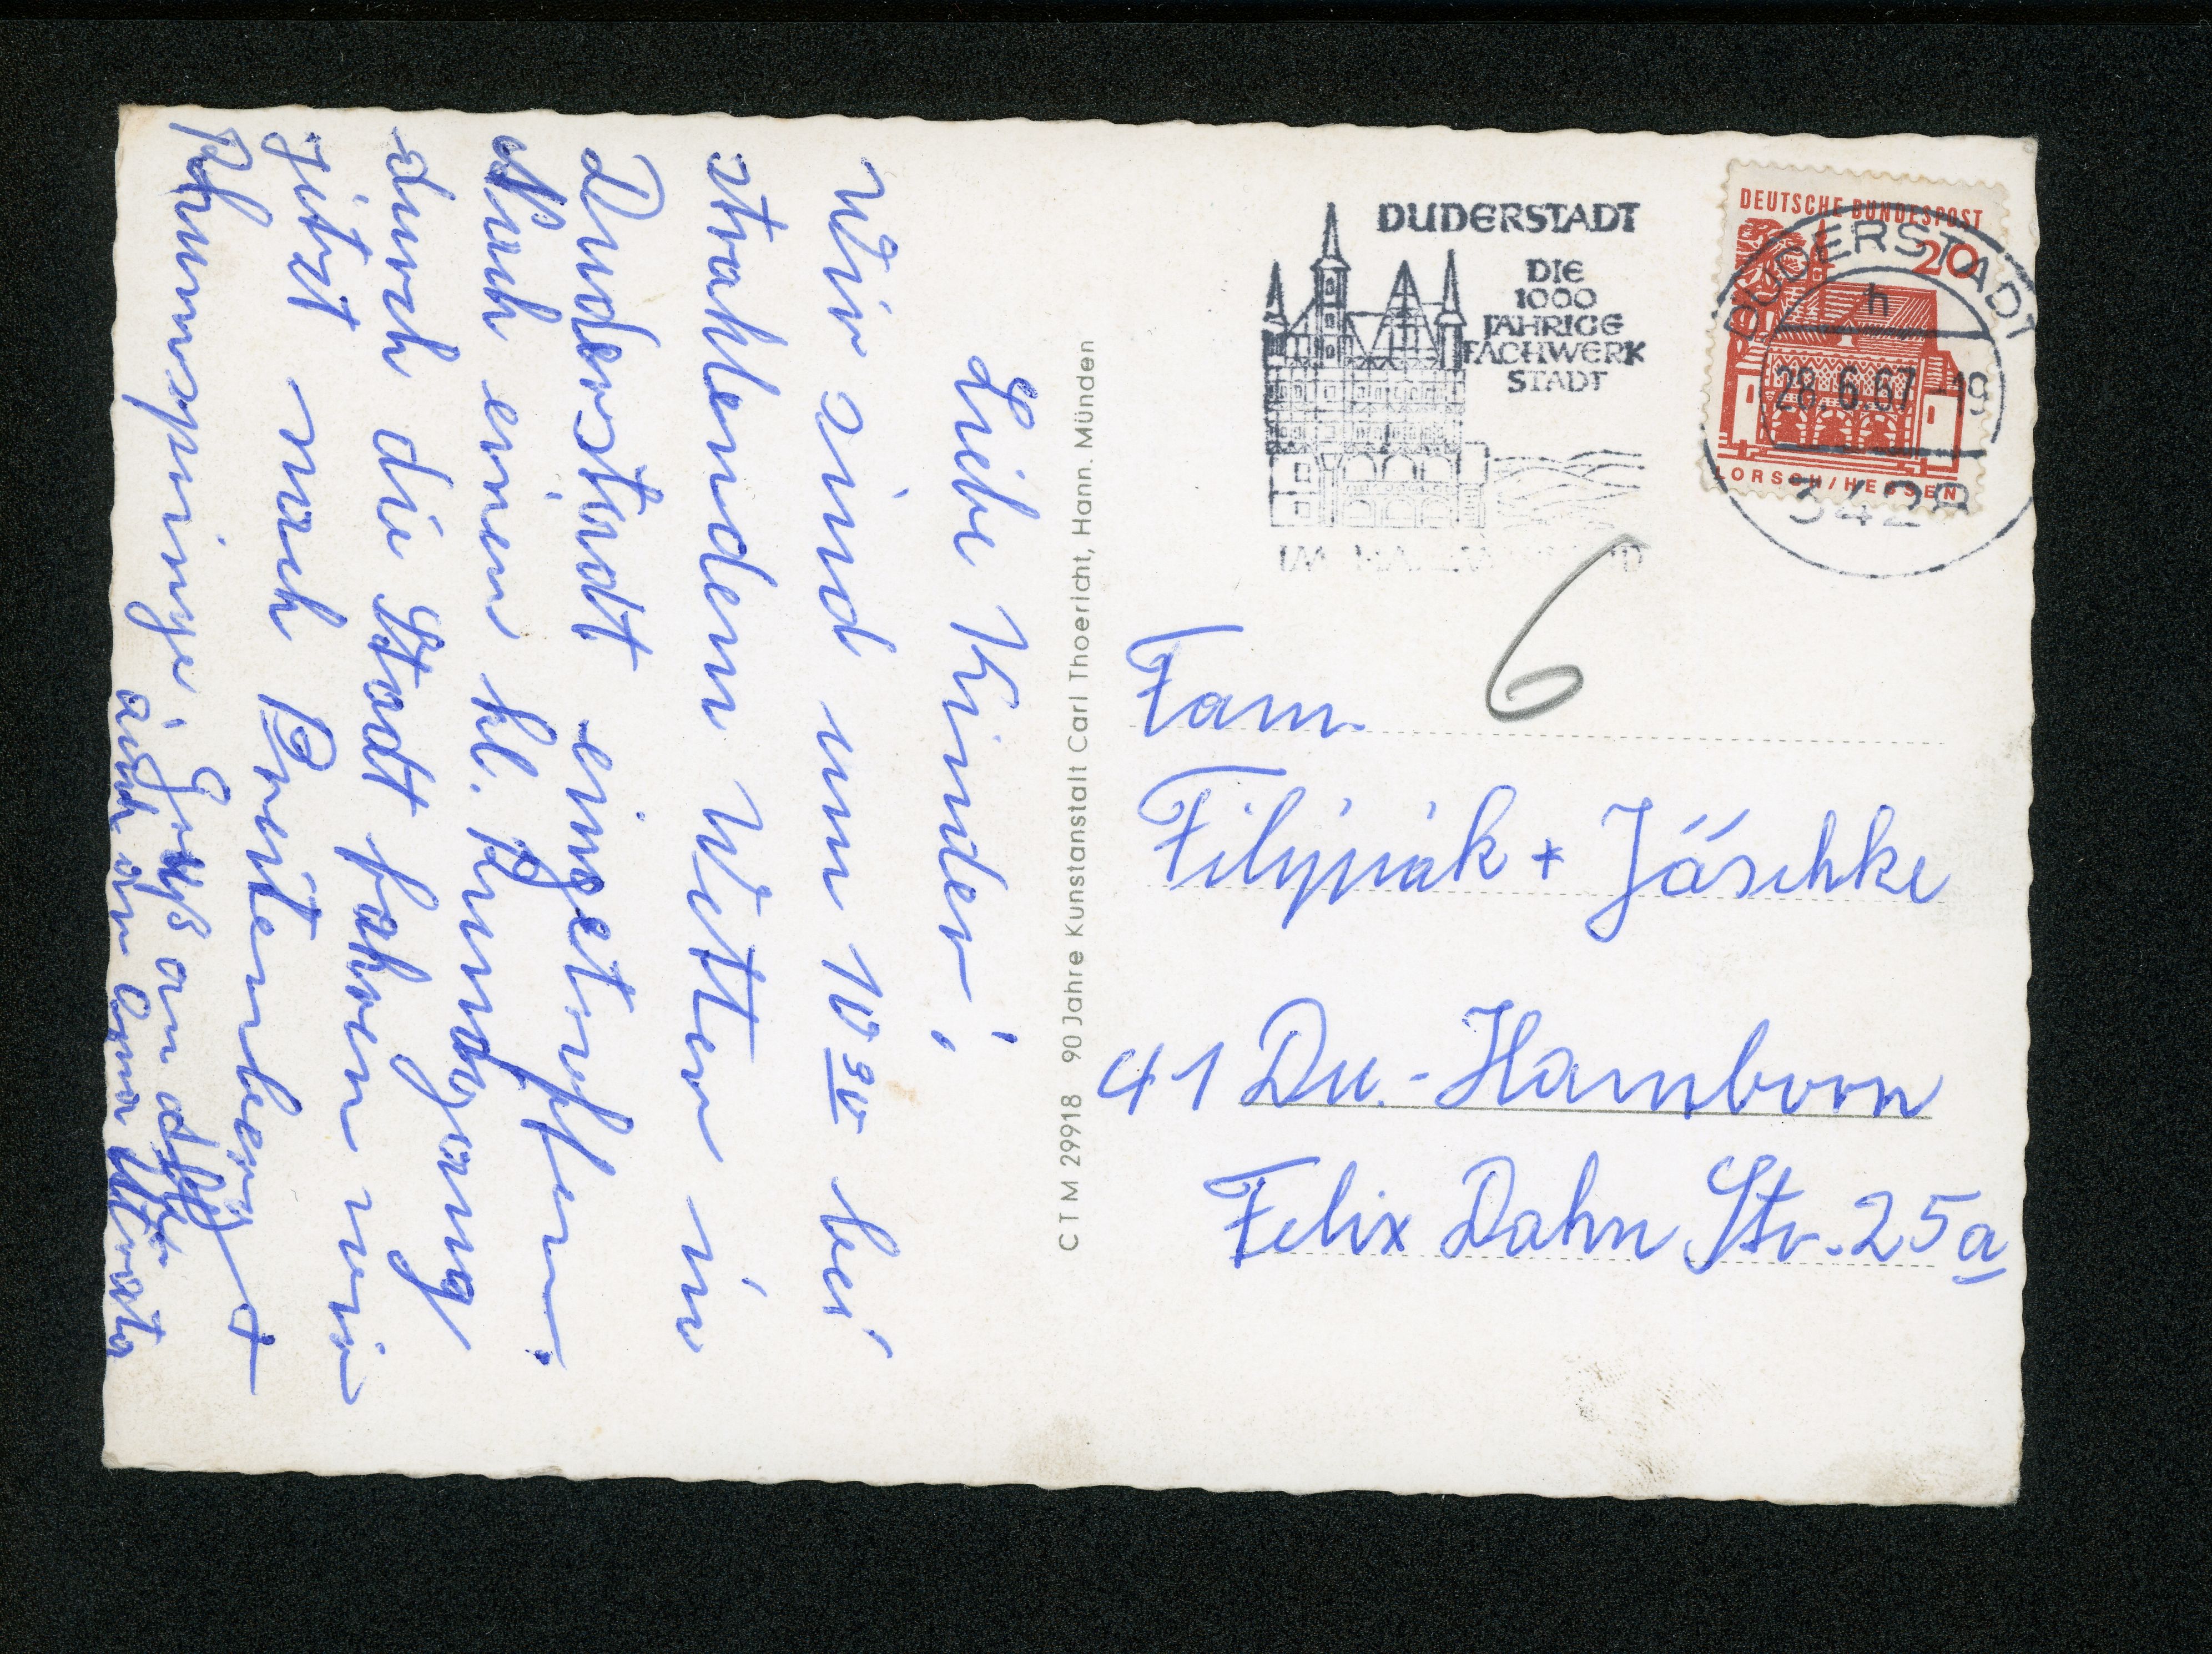 Liebe Kinder!
Wir sind um 10 30 bei
strahlendem Wetter in
Duderstadt eingetroffen.
Nach einem kl. Rundgang
durch die Stadt fahren wir
jetzt nach Breitenberg +
Rhumspringe
Gruß an
auch an Oma
CTM 29918 90 Jahre Kunstanstalt Carl Thoericht, Hann. Münden
DUDERSTADT
DIE
1000
JÄHRIGE
FACHWERK
STADT
DEUTSCHE BUNDESPOST
20
LORSCH/HESSEN
DUDERSTADT
h
28.6.67-19
3428
6
Fam.
Filipiak + Jäschke
41 Du.-Hamborn
Felix Dahn Str. 25a